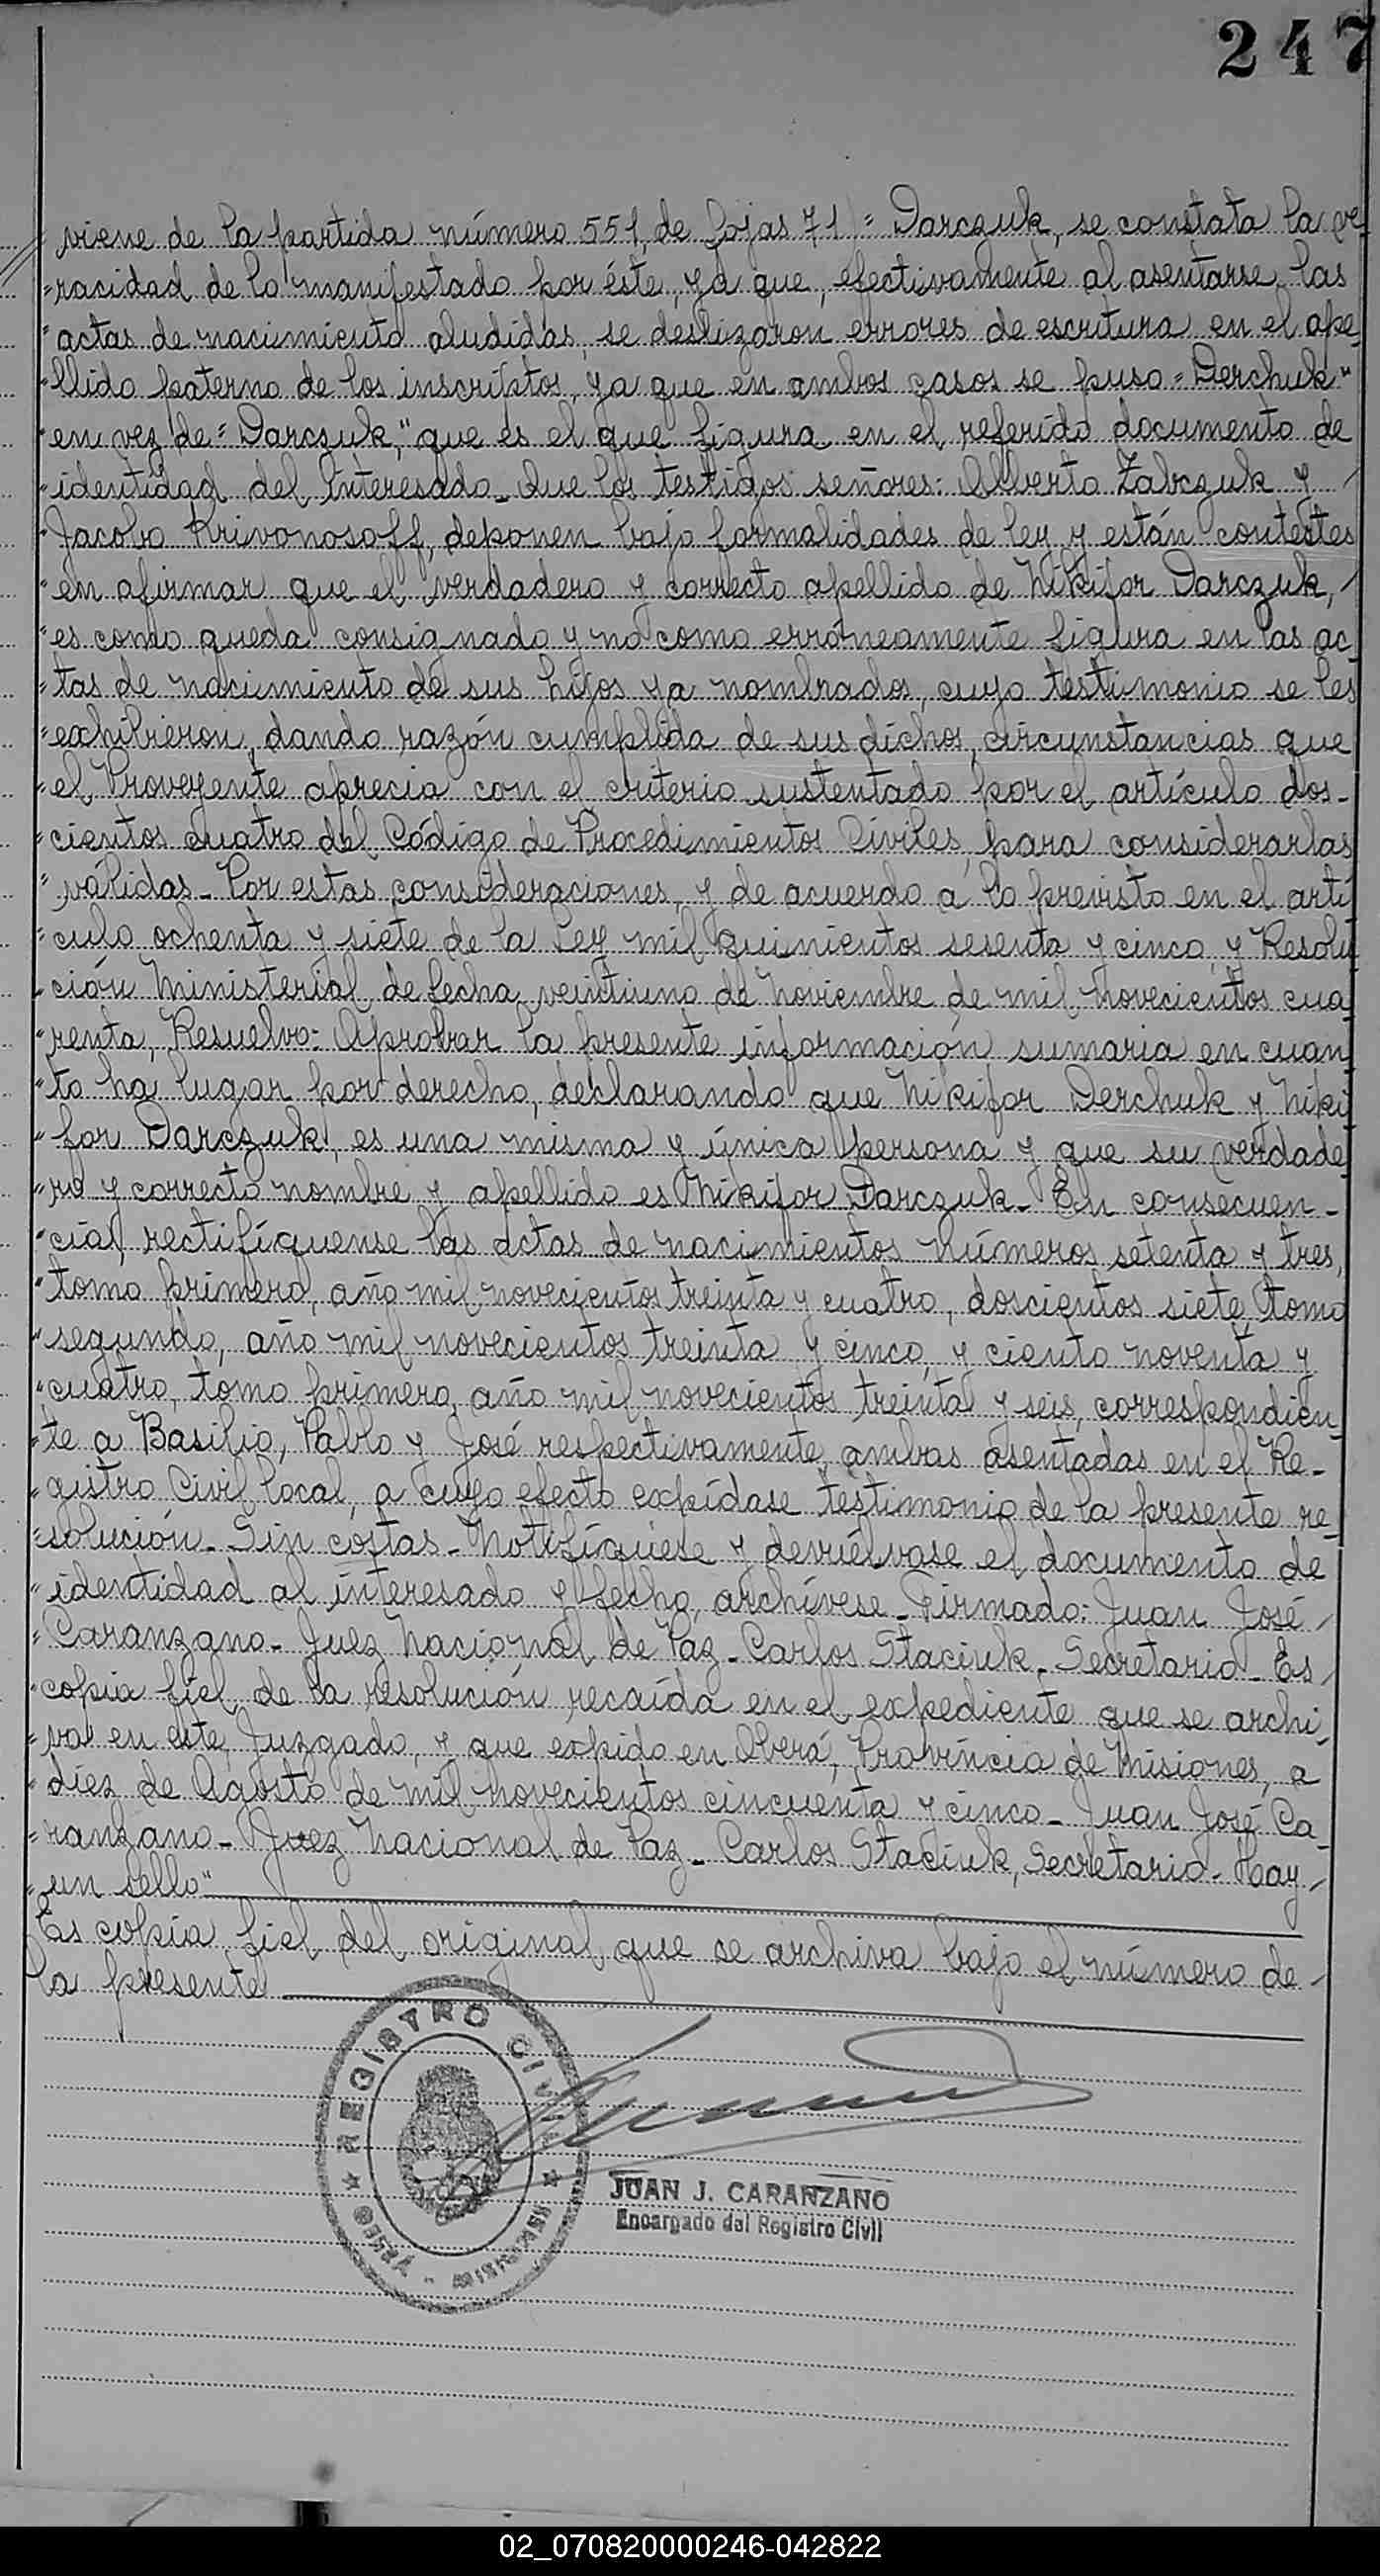 247
viene de la partida número 551 de fojas 71 = Darczuk, se constata la ve-
"racidad de lo manifestado por éste, ya que, efectivamente al asentarse las
"actas de nacimiento aludidas, se deslizaron errores de escritura en el ape-
"llido paterno de los inscriptos, ya que en ambos casos se puso = Derchuk"
"en vez de = Darczuk," que es el que figura en el referido documento de
"identidad del interesado_ Que los testigos señores: Alberto Zabczuk y
"Jacobo Krivonosoff, deponen bajo formalidades de ley y están contestes
"en afirmar que el verdadero y correcto apellido de Nikifor Darczuk,
"es como queda consignado y no como erróneamente figura en las ac-
"tas de nacimiento de sus hijos ya nombrados, cuyo testimonio se les
"exhibieron, dando razón cumplida de sus dichos, circunstancias que
"el Proveyente aprecia con el criterio sustentado por el artículo dos-
"cientos cuatro del Código de Procedimientos Civiles, para considerarlas
"válidas_ Por estas consideraciones, y de acuerdo a lo previsto en el artí
"culo ochenta y siete de la Ley mil quinientos sesenta y cinco, y Resolu
"ción Ministerial de fecha veintiuno de Noviembre de mil novecientos cua
"renta, Resuelvo: Aprobar la presente información sumaria en cuan
"to ha lugar por derecho, declarando que Nikifor Derchuk y Niki
"for Darczuk, es una misma y única persona y que su verdade
"ro y correcto nombre y apellido es Nikifor Darczuk_ En consecuen-
"cia, rectifíquense las actas de nacimientos números setenta y tres,
"tomo primero, año mil novecientos treinta y cuatro, doscientos siete, tomo
"segundo, año mil novecientos treinta y cinco, y ciento noventa y
"cuatro, tomo primero, año mil novecientos treinta y seis, correspondien
"te a Basilio, Pablo y José respectivamente, ambas asentadas en el Re-
"gistro Civil local, a cuyo efecto expídase testimonio de la presente re-
"solución_ Sin costas_ Notifíquese y devuélvase el documento de
"identidad al interesado y fecho, archívese_ Firmado: Juan José
"Caranzano_ Juez Nacional de Paz_ Carlos Staciuk_ Secretario_ Es
"copia fiel de la resolución recaída en el expediente que se archi
"va en este Juzgado, y que expido en Oberá, Provincia de Misiones, a
"diez de Agosto de mil novecientos cincuenta y cinco_ Juan José Ca-
"ranzano_ Juez Nacional de Paz_ Carlos Staciuk, Secretario_ Hay
"un sello"
Es copia fiel del original que se archiva bajo el número de
la presente
REGISTRO CIVIL
OBERÁ - MISIONES
JUAN J. CARANZANO
Encargado del Registro Civil
02_070820000246-042822